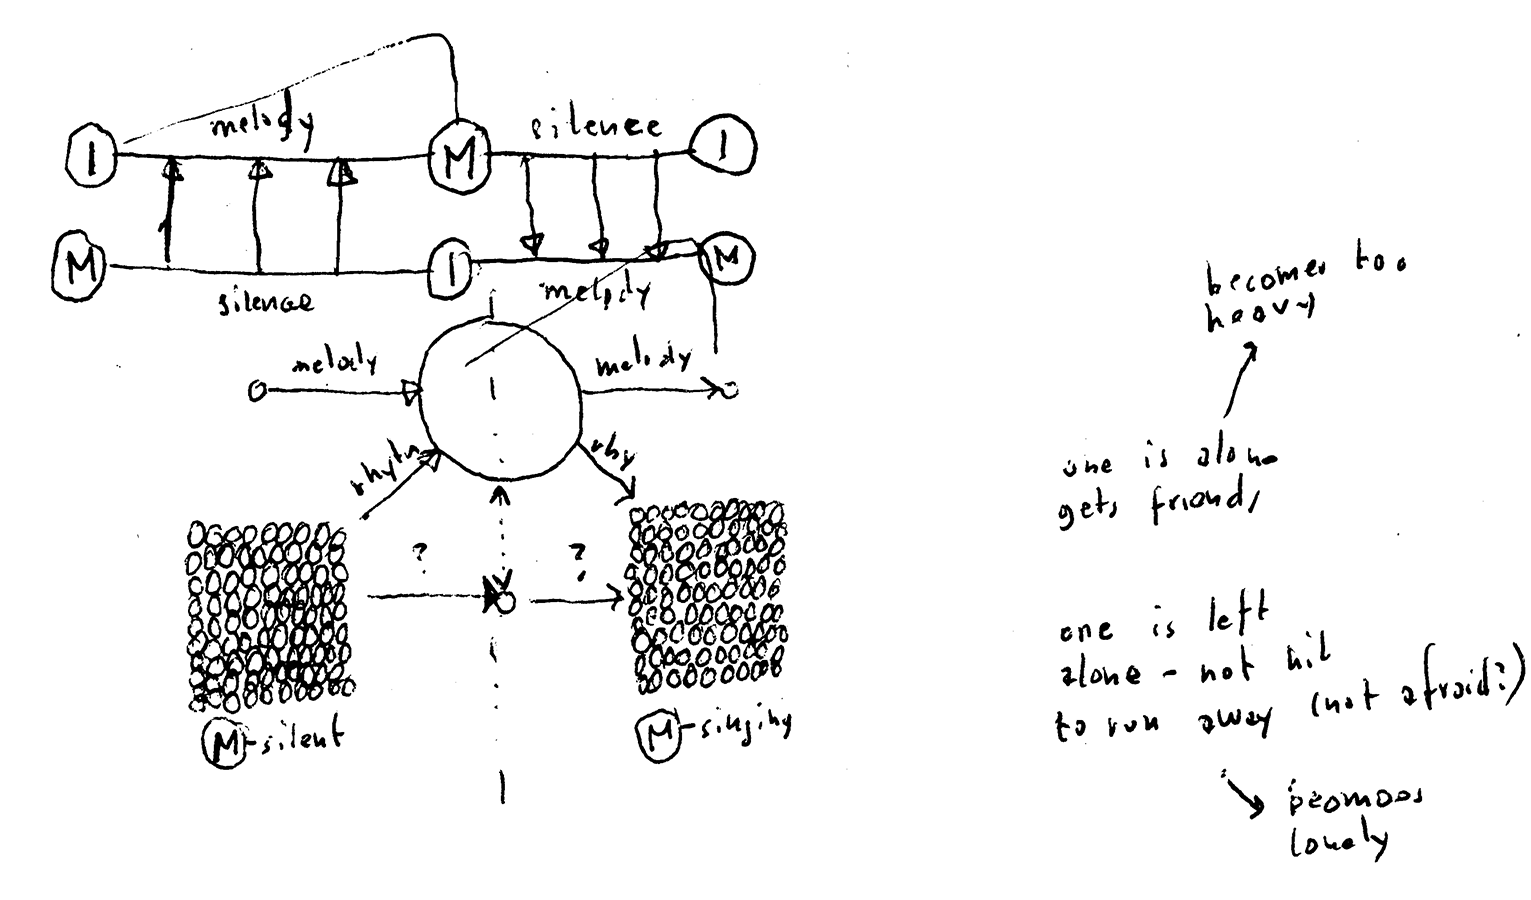 melody
silence
I
M
I
M
I
M
silence
melody
melody
melody
I
rhytm
rhy
?
?
M-silent
M-singing
becomes too
heavy
one is alone
gets friends
one is left
alone - not
to run away (not afraid?)
lonely